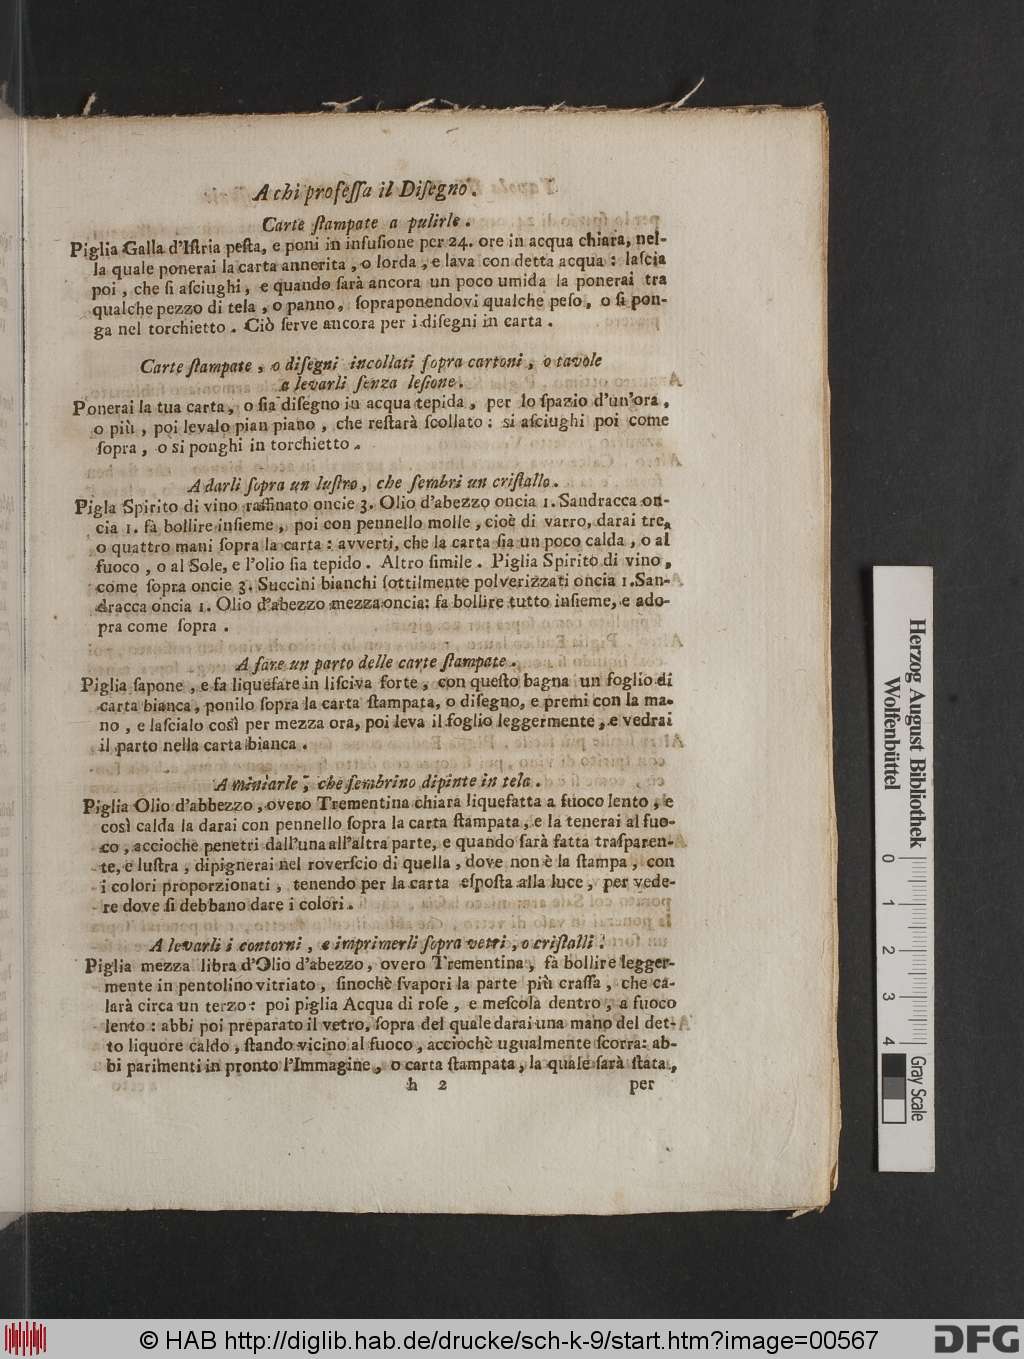 A chi profeſſa il Diſegno.
Carte ſtampate a pulirle.
Piglia Galla d'Iſtria peſta, e poni in infuſione per 24. ore in acqua chiara, nel-
la quale ponerai la carta annerita, o lorda, e lava con detta acqua: laſcia
poi, che ſi aſciughi, e quando ſarà ancora un poco umida la ponerai tra
qualche pezzo di tela, o panno, ſopraponendovi qualche peſo, o ſi pon-
ga nel torchietto. Ciò ſerve ancora per i diſegni in carta.
Carte ſtampate, o diſegni incollati ſopra cartoni, o tavole
a levarli ſenza leſione.
Ponerai la tua carta, o ſia diſegno in acqua tepida, per lo ſpazio d'un'ora,
o più, poi levalo pian piano, che reſtarà ſcollato: si aſciughi poi come
ſopra, o si ponghi in torchietto.
A darli ſopra un luſtro, che ſembri un criſtallo.
Pigla Spirito di vino raffinato oncie 3. Olio d'abezzo oncia 1. Sandracca on-
cia 1. fà bollire inſieme, poi con pennello molle, cioè di varro, darai tre,
o quattro mani ſopra la carta: avverti, che la carta ſia un poco calda, o al
fuoco, o al Sole, e l'olio ſia tepido. Altro ſimile. Piglia Spirito di vino,
come ſopra oncie 3. Succini bianchi ſottilmente polverizzati oncia 1. San-
dracca oncia 1. Olio d'abezzo mezza oncia: fa bollire tutto inſieme, e ado-
pra come ſopra.
A fare un parto delle carte ſtampate.
Piglia ſapone, e fa liquefare in liſciva forte, con queſto bagna un foglio di
carta bianca, ponilo ſopra la carta ſtampata, o diſegno, e premi con la ma-
no, e laſcialo così per mezza ora, poi leva il foglio leggermente, e vedrai
il parto nella carta bianca.
A miniarle, che ſembrino dipinte in tela.
Piglia Olio d'abbezzo, overo Trementina chiara liquefatta a fuoco lento, e
così calda la darai con pennello ſopra la carta ſtampata, e la tenerai al fuo-
co, accioche penetri dall'una all'altra parte, e quando ſarà fatta traſparen-
te, e luſtra, dipignerai nel roverſcio di quella, dove non è la ſtampa, con
i colori proporzionati, tenendo per la carta eſpoſta alla luce, per vede-
re dove ſi debbano dare i colori.
A levarli i contorni, e imprimerli ſopra vetri, o criſtalli.
Piglia mezza libra d'Olio d'abezzo, overo Trementina, fà bollire legger-
mente in pentolino vitriato, ſinochè ſvapori la parte più craſſa, che ca-
larà circa un terzo: poi piglia Acqua di roſe, e meſcola dentro, a fuoco
lento: abbi poi preparato il vetro, ſopra del quale darai una mano del det-
to liquore caldo, ſtando vicino al fuoco, acciochè ugualmente ſcorra: ab-
bi parimenti in pronto l'Immagine, o carta ſtampata, la quale ſarà ſtata,
h 2 per
Herzog August Bibliothek
Wolfenbüttel
0 1 2 3 4
Gray Scale
© HAB http://diglib.hab.de/drucke/sch-k-9/start.htm?image=00567
DFG